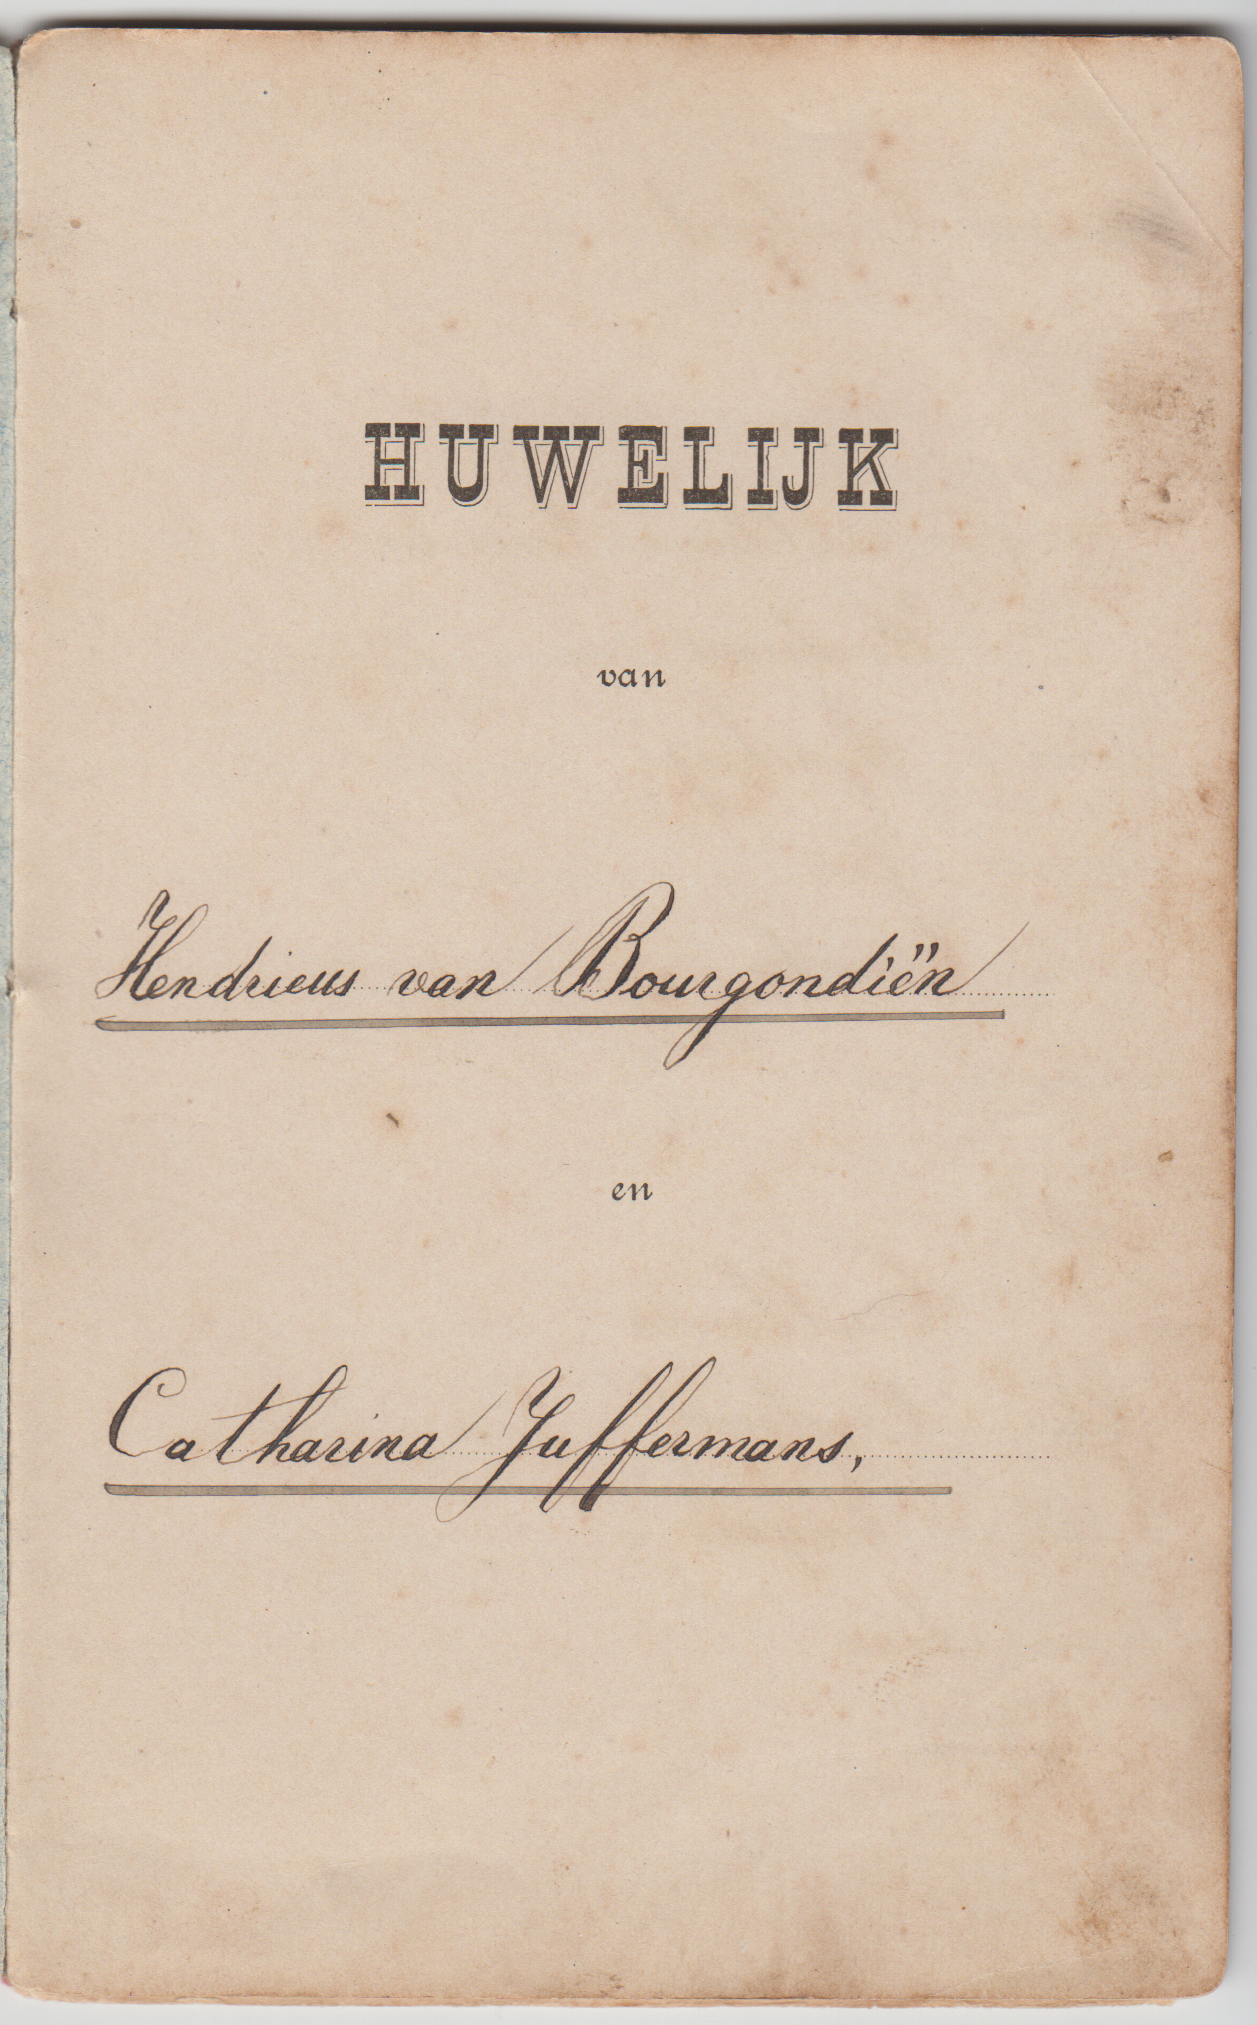 HUWELIJK
van
Hendricus van Bourgondiën
en
Catharina Juffermans,